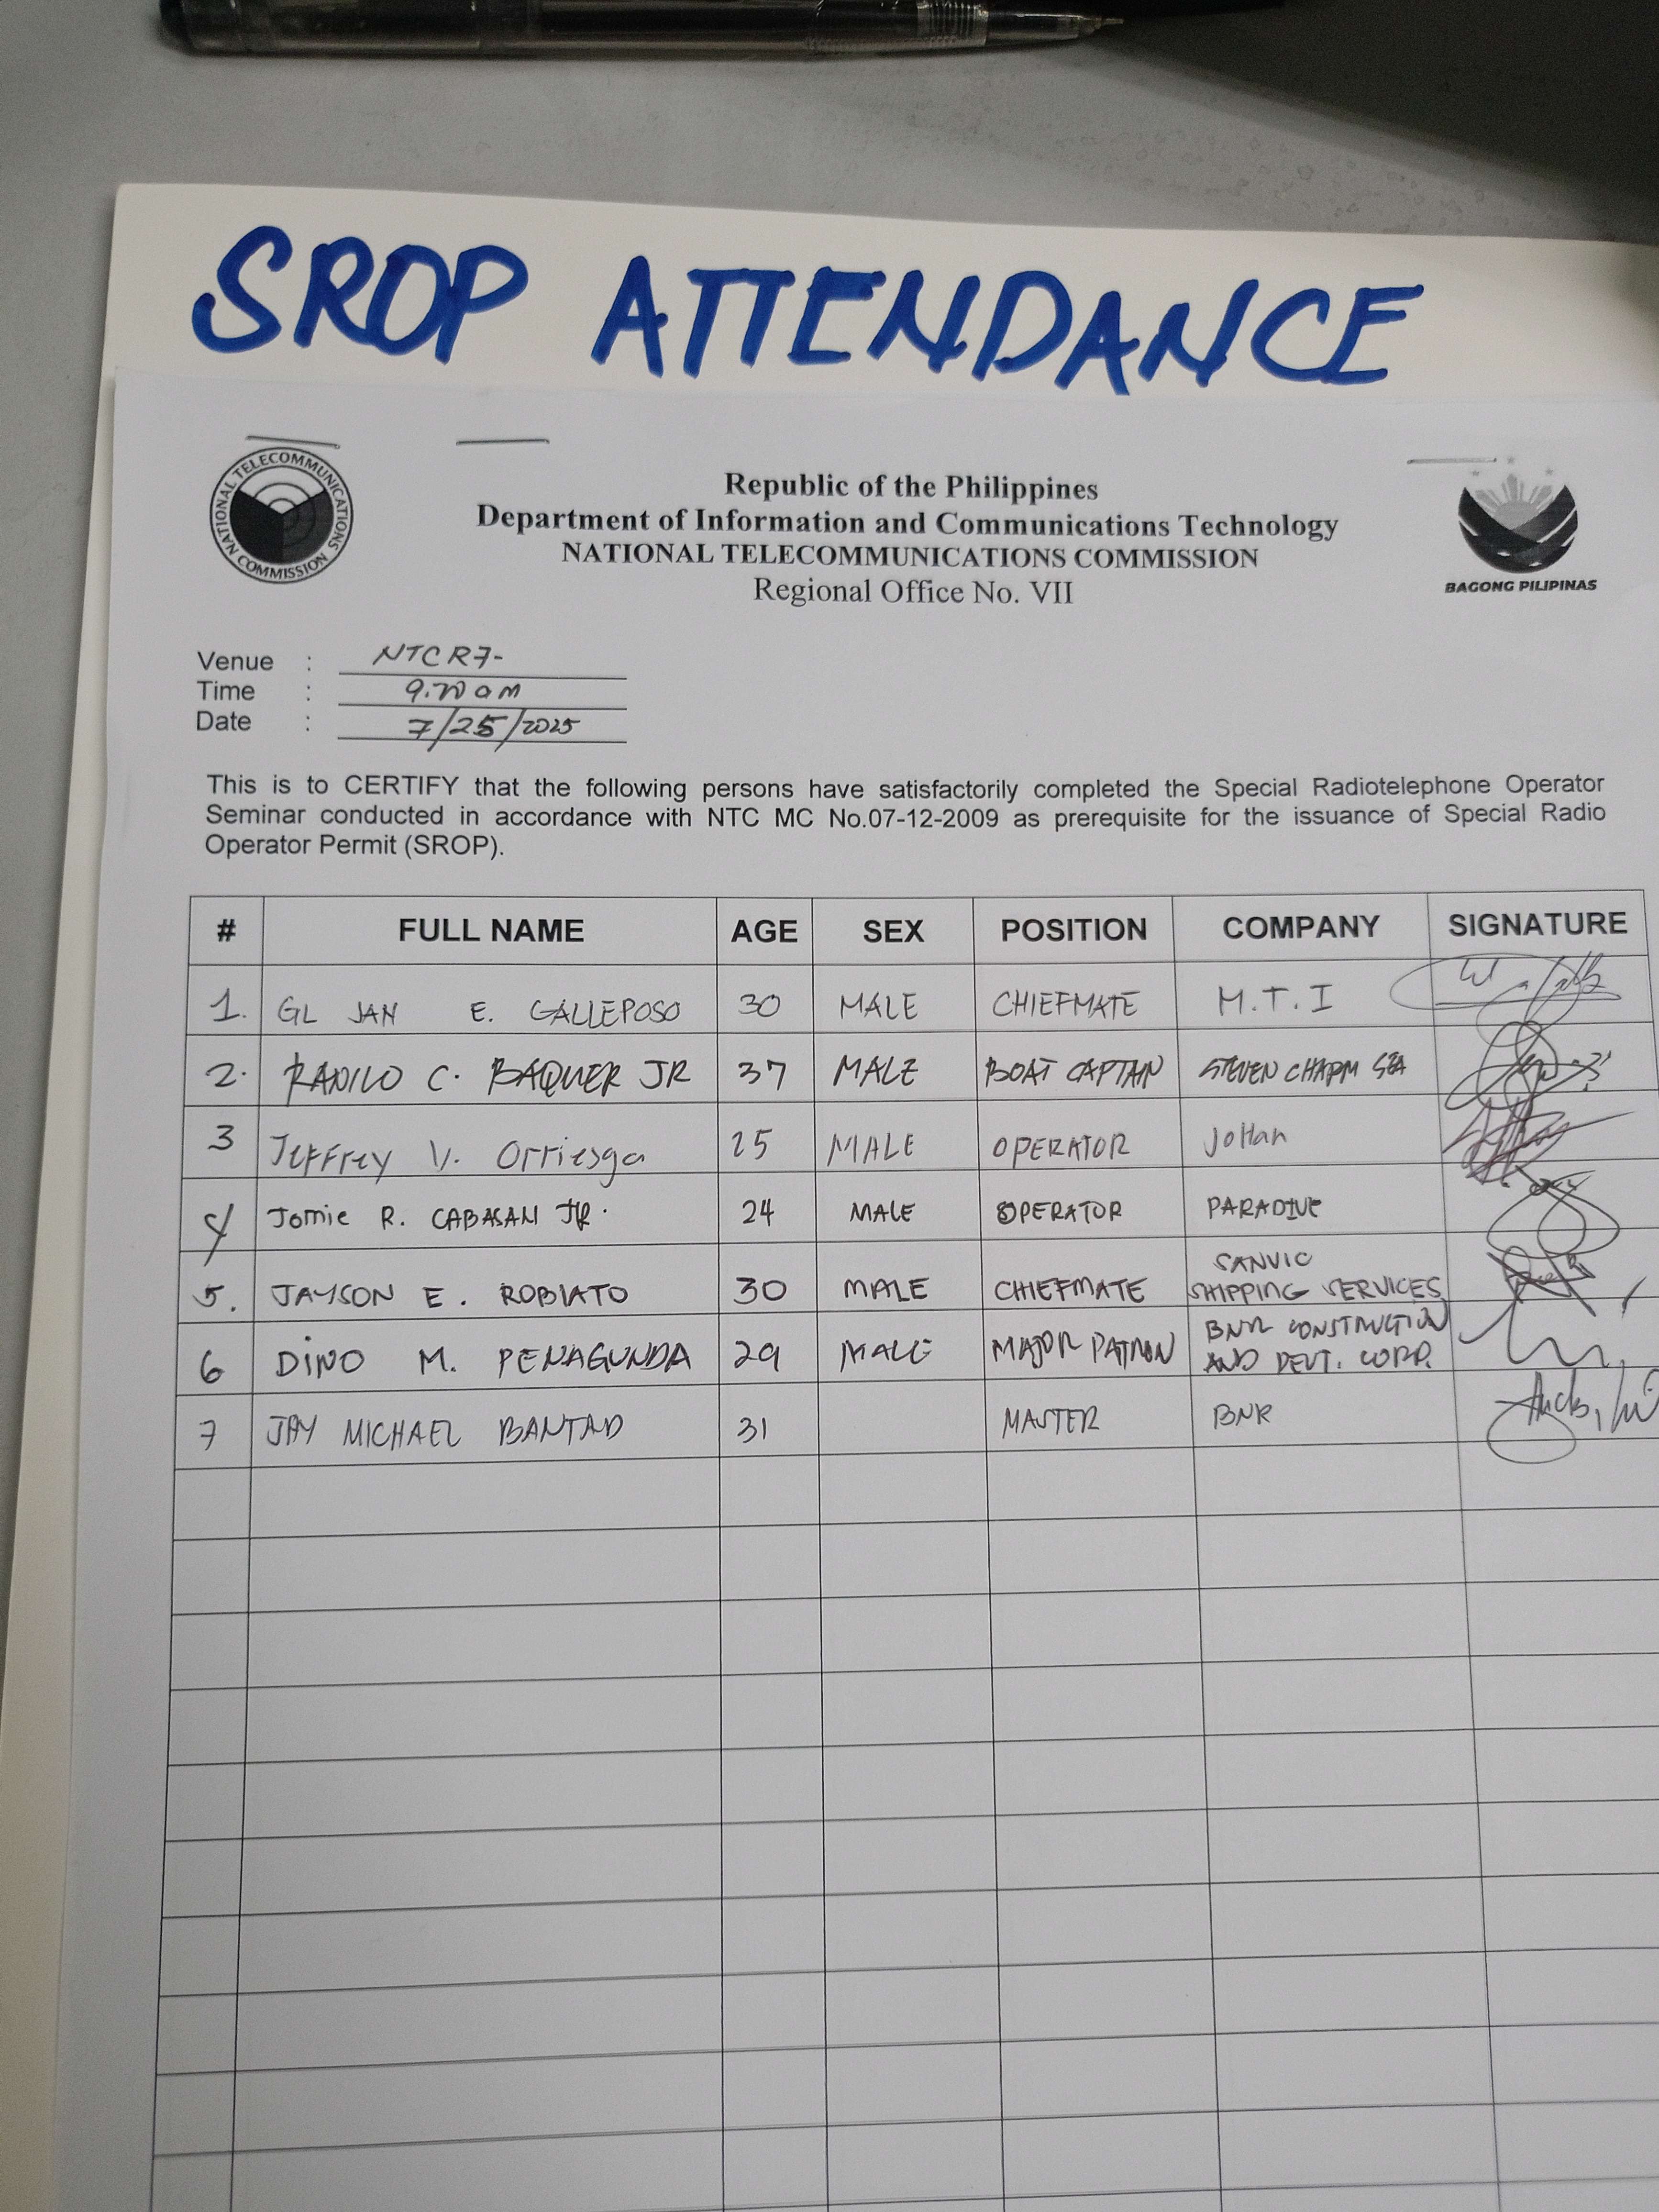 SROP ATTENDANCE
NATIONAL TELECOMMUNICATIONS COMMISSION
Republic of the Philippines
Department of Information and Communications Technology
NATIONAL TELECOMMUNICATIONS COMMISSION
Regional Office No. VII
BAGONG PILIPINAS
Venue : NTC R7-
Time : AM
Date : 7/25/2025
This is to CERTIFY that the following persons have satisfactorily completed the Special Radiotelephone Operator
Seminar conducted in accordance with NTC MC No.07-12-2009 as prerequisite for the issuance of Special Radio
Operator Permit (SROP).
# FULL NAME AGE SEX POSITION COMPANY SIGNATURE
1. GL JAN E. GALLEPOSO 30 MALE CHIEFMATE M.T.I
2. C. BAQUER JR 37 MALE BOAT CAPTAIN STEVEN CHARM SEA
3 Jeffrey V. Orriesga 25 MALE OPERATOR JoHan
4 Jomie R. CABASAN JR. 24 MALE OPERATOR PARADIVE
5. JAYSON E. ROBIATO 30 MALE CHIEFMATE SANVIC
SHIPPING SERVICES
6 DINO M. PENAGUNDA 29 MALE MAJOR PATRON BNR CONSTRUCTION
AND DEVT. CORP.
7 JAY MICHAEL BANTAD 31 MASTER BNR